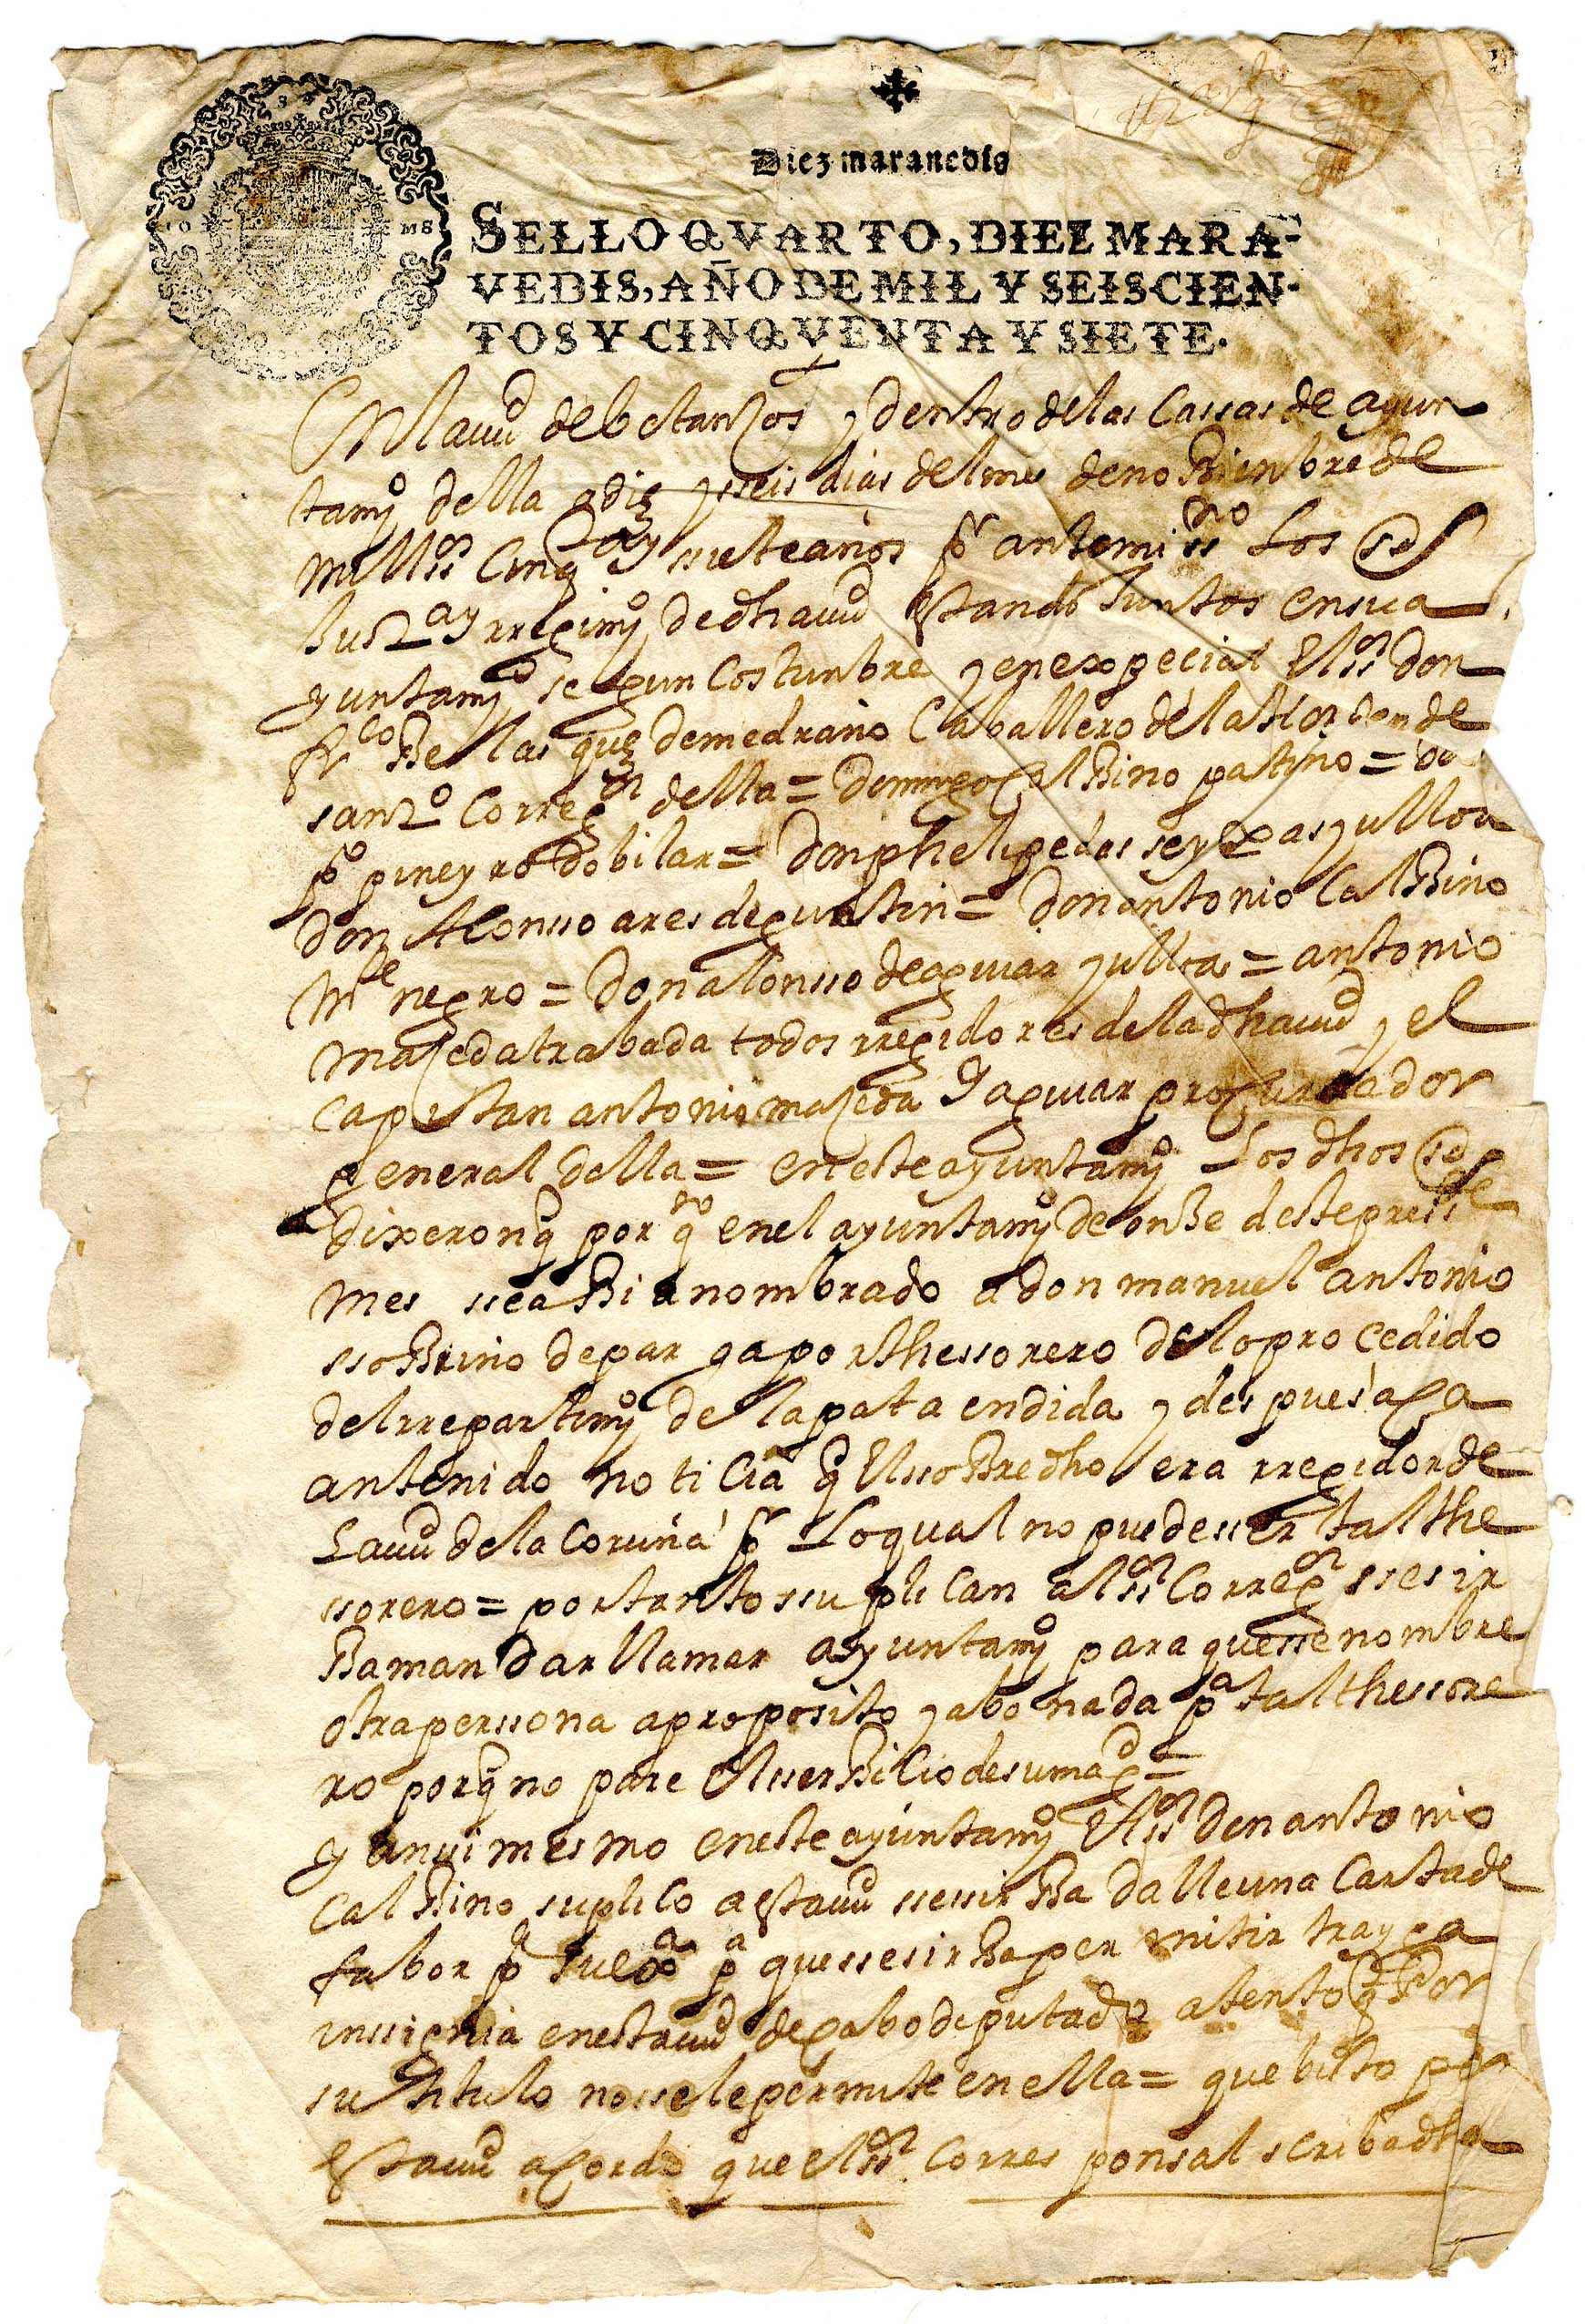 Diez maravedis
SELLO QVARTO, DIEZ MARA-
VEDIS, AÑO DE MIL Y SEISCIEN-
TOS Y CINQVENTA Y SIETE.
En la ciud de betanços y dentro de las Cassas de ayun
tamy.º della a diez y seis dias del mes de noBienbre de
mill ss.os Cinq.ta y siete años p.r ante mi ss.no Los s.es
Just.a y rregimy.º de dha ciud estando Juntos en su a
yuntamy.º segun Costunbre y en expecial El ss.or don
fr.co Belasquez de medrano Caballero de la Horden de
sant.º Correg.or della = domingo CalBino patiño =
p.º pineyro do bilar = don phelipe das seyxas y ulloa
don Alonsso ares de guntin = don antonio CalBino
m.le negro = Don alonsso de aguiar y ulloa = antonio
maçeda trabada todos rregidores de la dha ciud y el
capitan antonio maçeda y aguiar procurador
general della = en este ayuntamy.º Los dhos s.es
dixeron q por q.to en el ayuntamy.º de onBe deste press.te
mes sse aBia nombrado a don manuel antonio
ssoBrino de parga por thessorero de lo procedido
del rrepartimy.º de la pata endida y despues aca
an tenido noticia q El ssoBredho era rregidor de
La ciud de la Coruña p.r Lo qual no puede sser tal the
ssorero = por tanto ssuplican al ss.or Correg.or sse sir
Ba mandar llamar a ayuntamy.º para que sse nombre
otra perssona a proposito y abonada p.a tal thessore
ro por q no pare El sserBiCio de su mag.d =
y anssi mesmo en este ayuntamy.º El ss.or don antonio
CalBino suplico a esta ciud sse sirBa dalle una Carta de
fabor p.a suex.a p.a que sse sirBa permitir trayga
inssignia en esta ciud de cabo deputado atento q Por
su titulo no sse le permite en ella = que bisto por
esta ciud acordo que el ss.or Corresponsal scriba dha